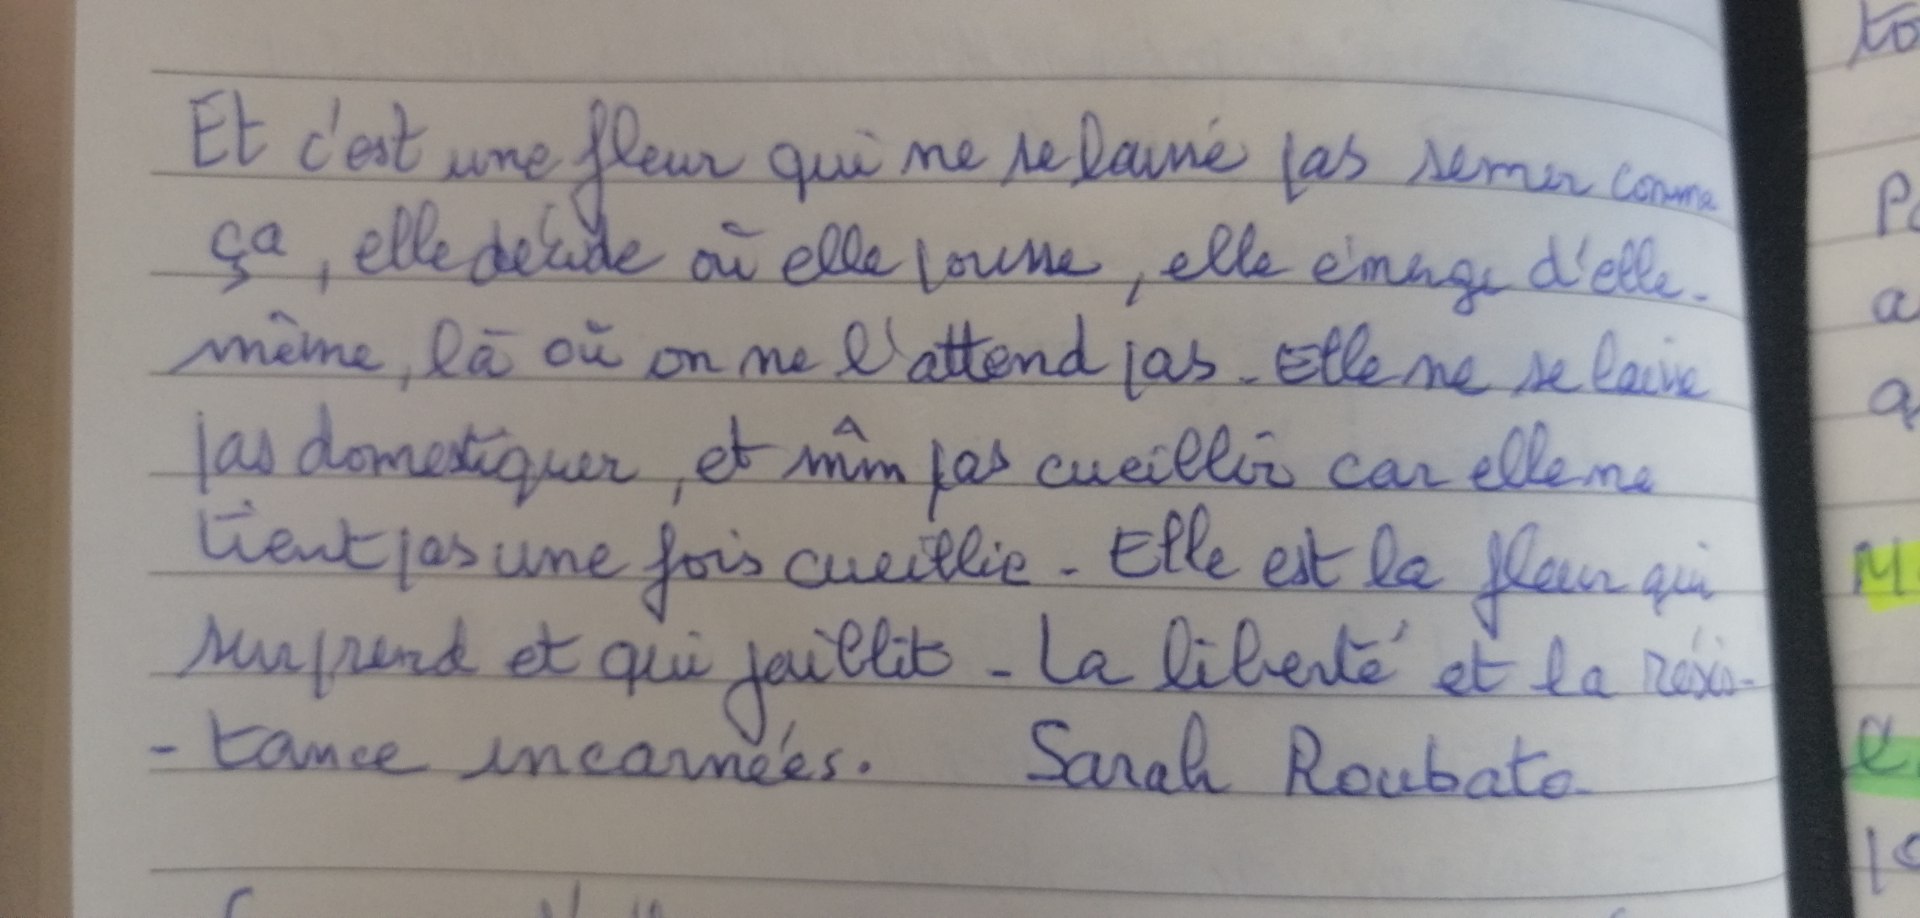 Et c'est une fleur qui ne se laisse pas semer comme
ça, elle décide où elle pousse, elle émerge d'elle-
même, là où on ne l'attend pas. Elle ne se laisse
pas domestiquer, et mêm pas cueillir car elle ne
tient pas une fois cueillie. Elle est la fleur qui
surprend et qui jaillit. La liberté et la résis-
-tance incarnées. Sarah Roubato.